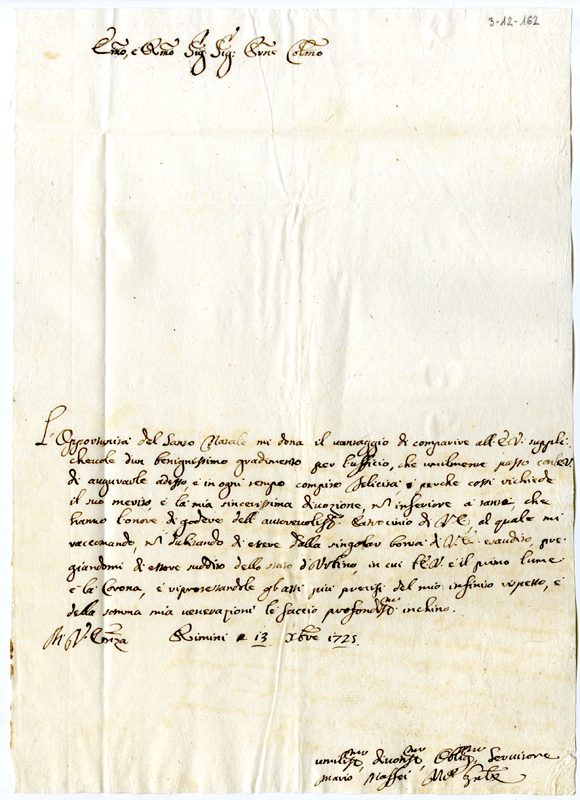 3-12-162
Emo, e Rmo Sig. Sig: Prne Colmo
L'Opportunità del Santo Natale mi dona il vantaggio di comparire all'E.V. suppli:
chevole d'un benignissimo gradimento per l'uffizio, che umilmente passo con E.V.
di augurarle adesso e in ogni tempo compite felicità, e perche così richiede
il suo merito, e la mia sincerissima divozione, nō inferiore a tanti, che
hanno l'onore di godere dell'autorevoliss.mo Patrocinio di V.E., al quale mi
raccomando, nō dubitando di essere dalla singolar bontà di V.E. esaudito, pre-
giandomi di essere suddito dello stato d'Urbino, in cui l'E.V. è il primo lume
e la Corona, e ripressandole gl'atti più precisi del mio infinito rispetto, e
della somma mia venerazione le faccio profondiss.mo inchino.
Di V. Emza Rimini 13 Xbre 1725
umiliss.mo divotiss.mo Obligmo Servitore
Mario Maffei